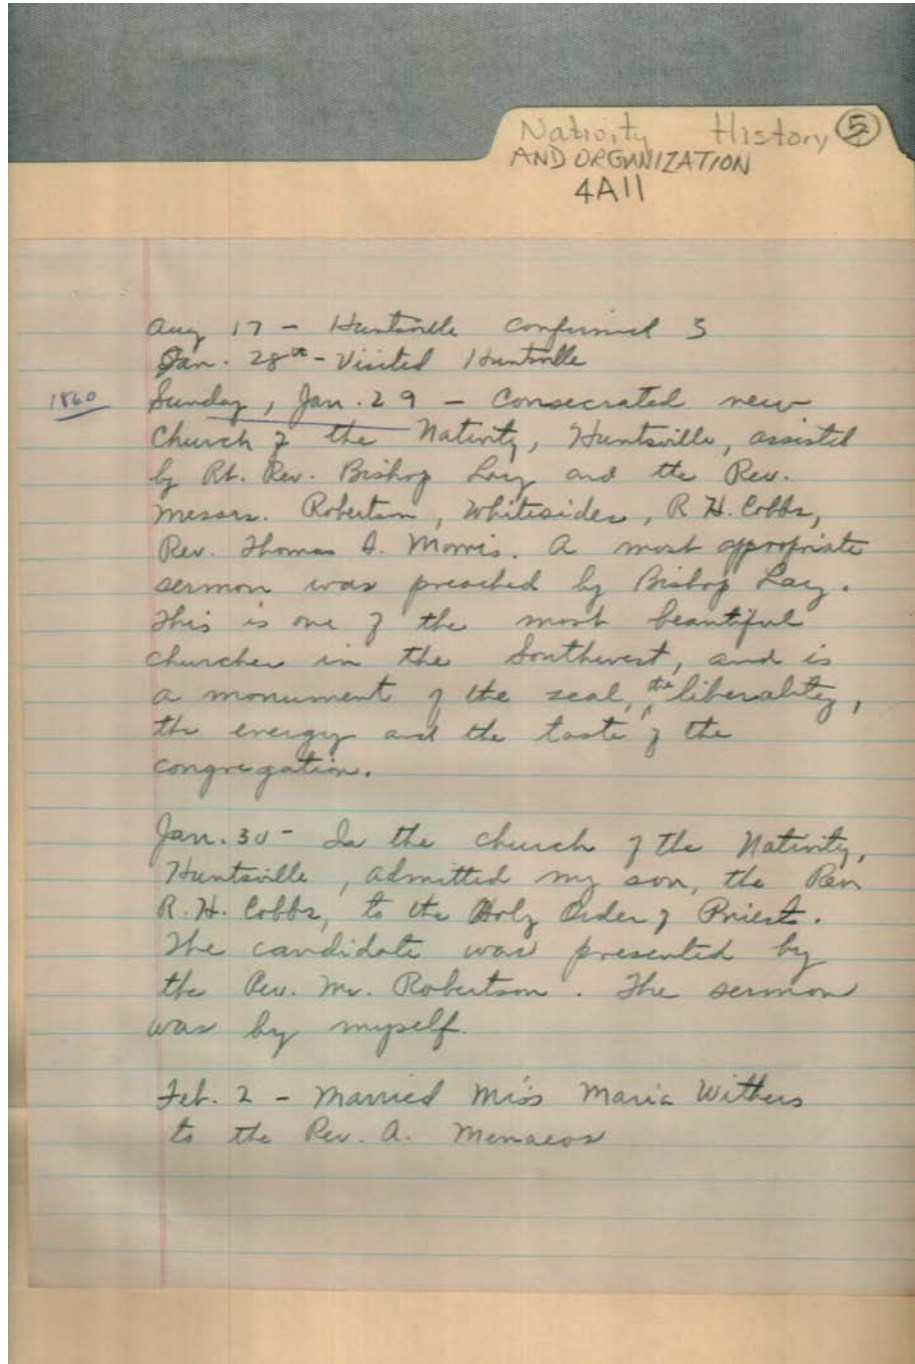 Nativity History 5
AND ORGANIZATION
4A11
Aug 17 - Huntsville confirmed 3
Jan. 28th - Visited Huntsville
1860 Sunday, Jan. 29 - Consecrated new
Church of the Nativity, Huntsville, assisted
by Rt. Rev. Bishop Lay and the Rev.
Messrs. Robertson, Whitesides, R H. Cobbs,
Rev. Thomas A. Morris. A most appropriate
sermon was preached by Bishop Lay.
This is one of the most beautiful
churches in the Southwest, and is
a monument of the zeal, the liberality,
the energy and the taste of the
congregation.
Jan. 30 - In the church of the Nativity,
Huntsville, admitted my son, the Rev
R. H. Cobbs, to the Holy Order of Priest.
The candidate was presented by
the Rev. Mr. Robertson. The sermon
was by myself.
Feb. 2 - Married Miss Maria Withers
to the Rev. A.